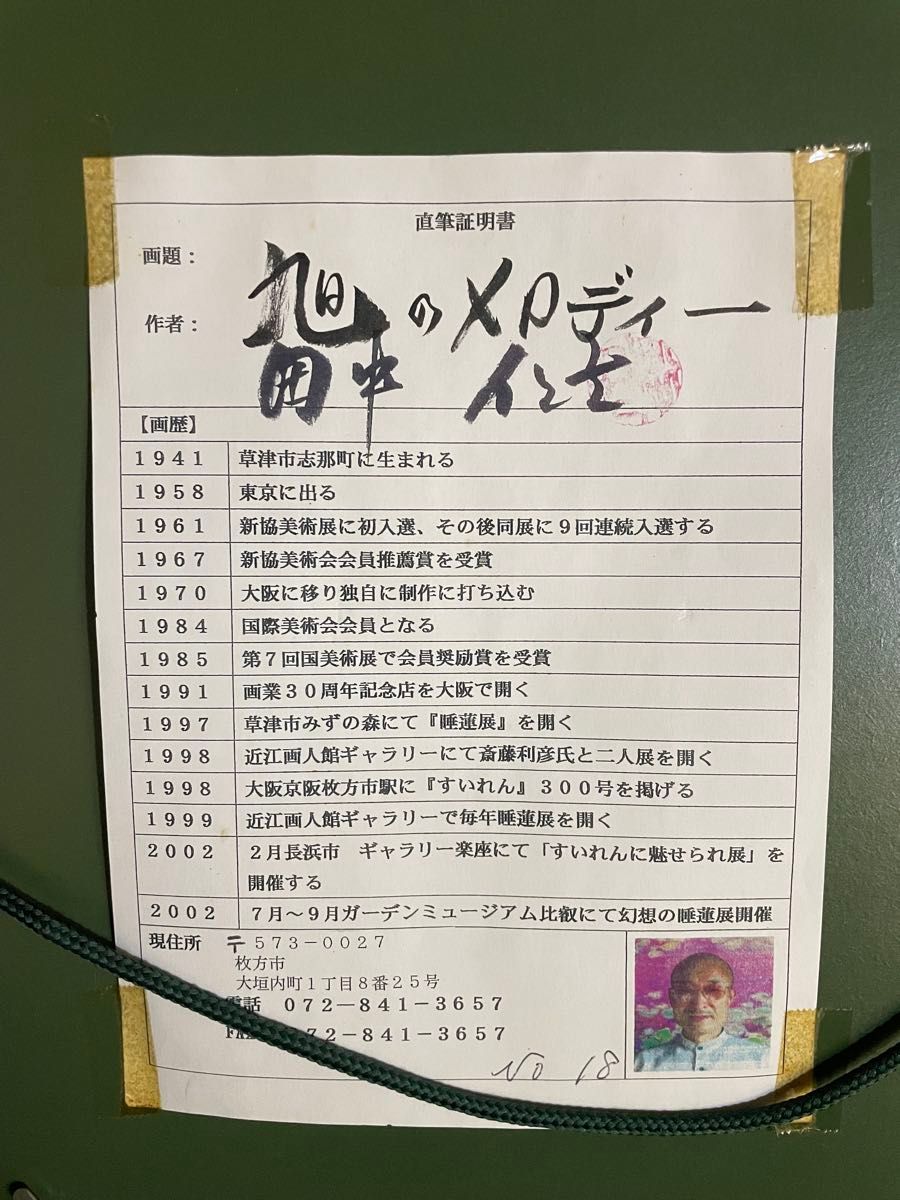 直筆証明書
画題：
旭のメロディー
作者：
田中
【画歴】
1941 草津市志那町に生まれる
1958 東京に出る
1961 新協美術展に初入選、その後同展に９回連続入選する
1967 新協美術会会員推薦賞を受賞
1970 大阪に移り独自に制作に打ち込む
1984 国際美術会会員となる
1985 第７回国美術展で会員奨励賞を受賞
1991 画業３０周年記念店を大阪で開く
1997 草津市みずの森にて『睡蓮展』を開く
1998 近江画人館ギャラリーにて斎藤利彦氏と二人展を開く
1998 大阪京阪枚方市駅に『すいれん』３００号を掲げる
1999 近江画人館ギャラリーで毎年睡蓮展を開く
2002 ２月長浜市　ギャラリー楽座にて「すいれんに魅せられ展」を
開催する
2002 ７月～９月ガーデンミュージアム比叡にて幻想の睡蓮展開催
現住所 〒573-0027
枚方市
大垣内町１丁目８番２５号
電話　072-841-3657
FAX　072-841-3657
No 18